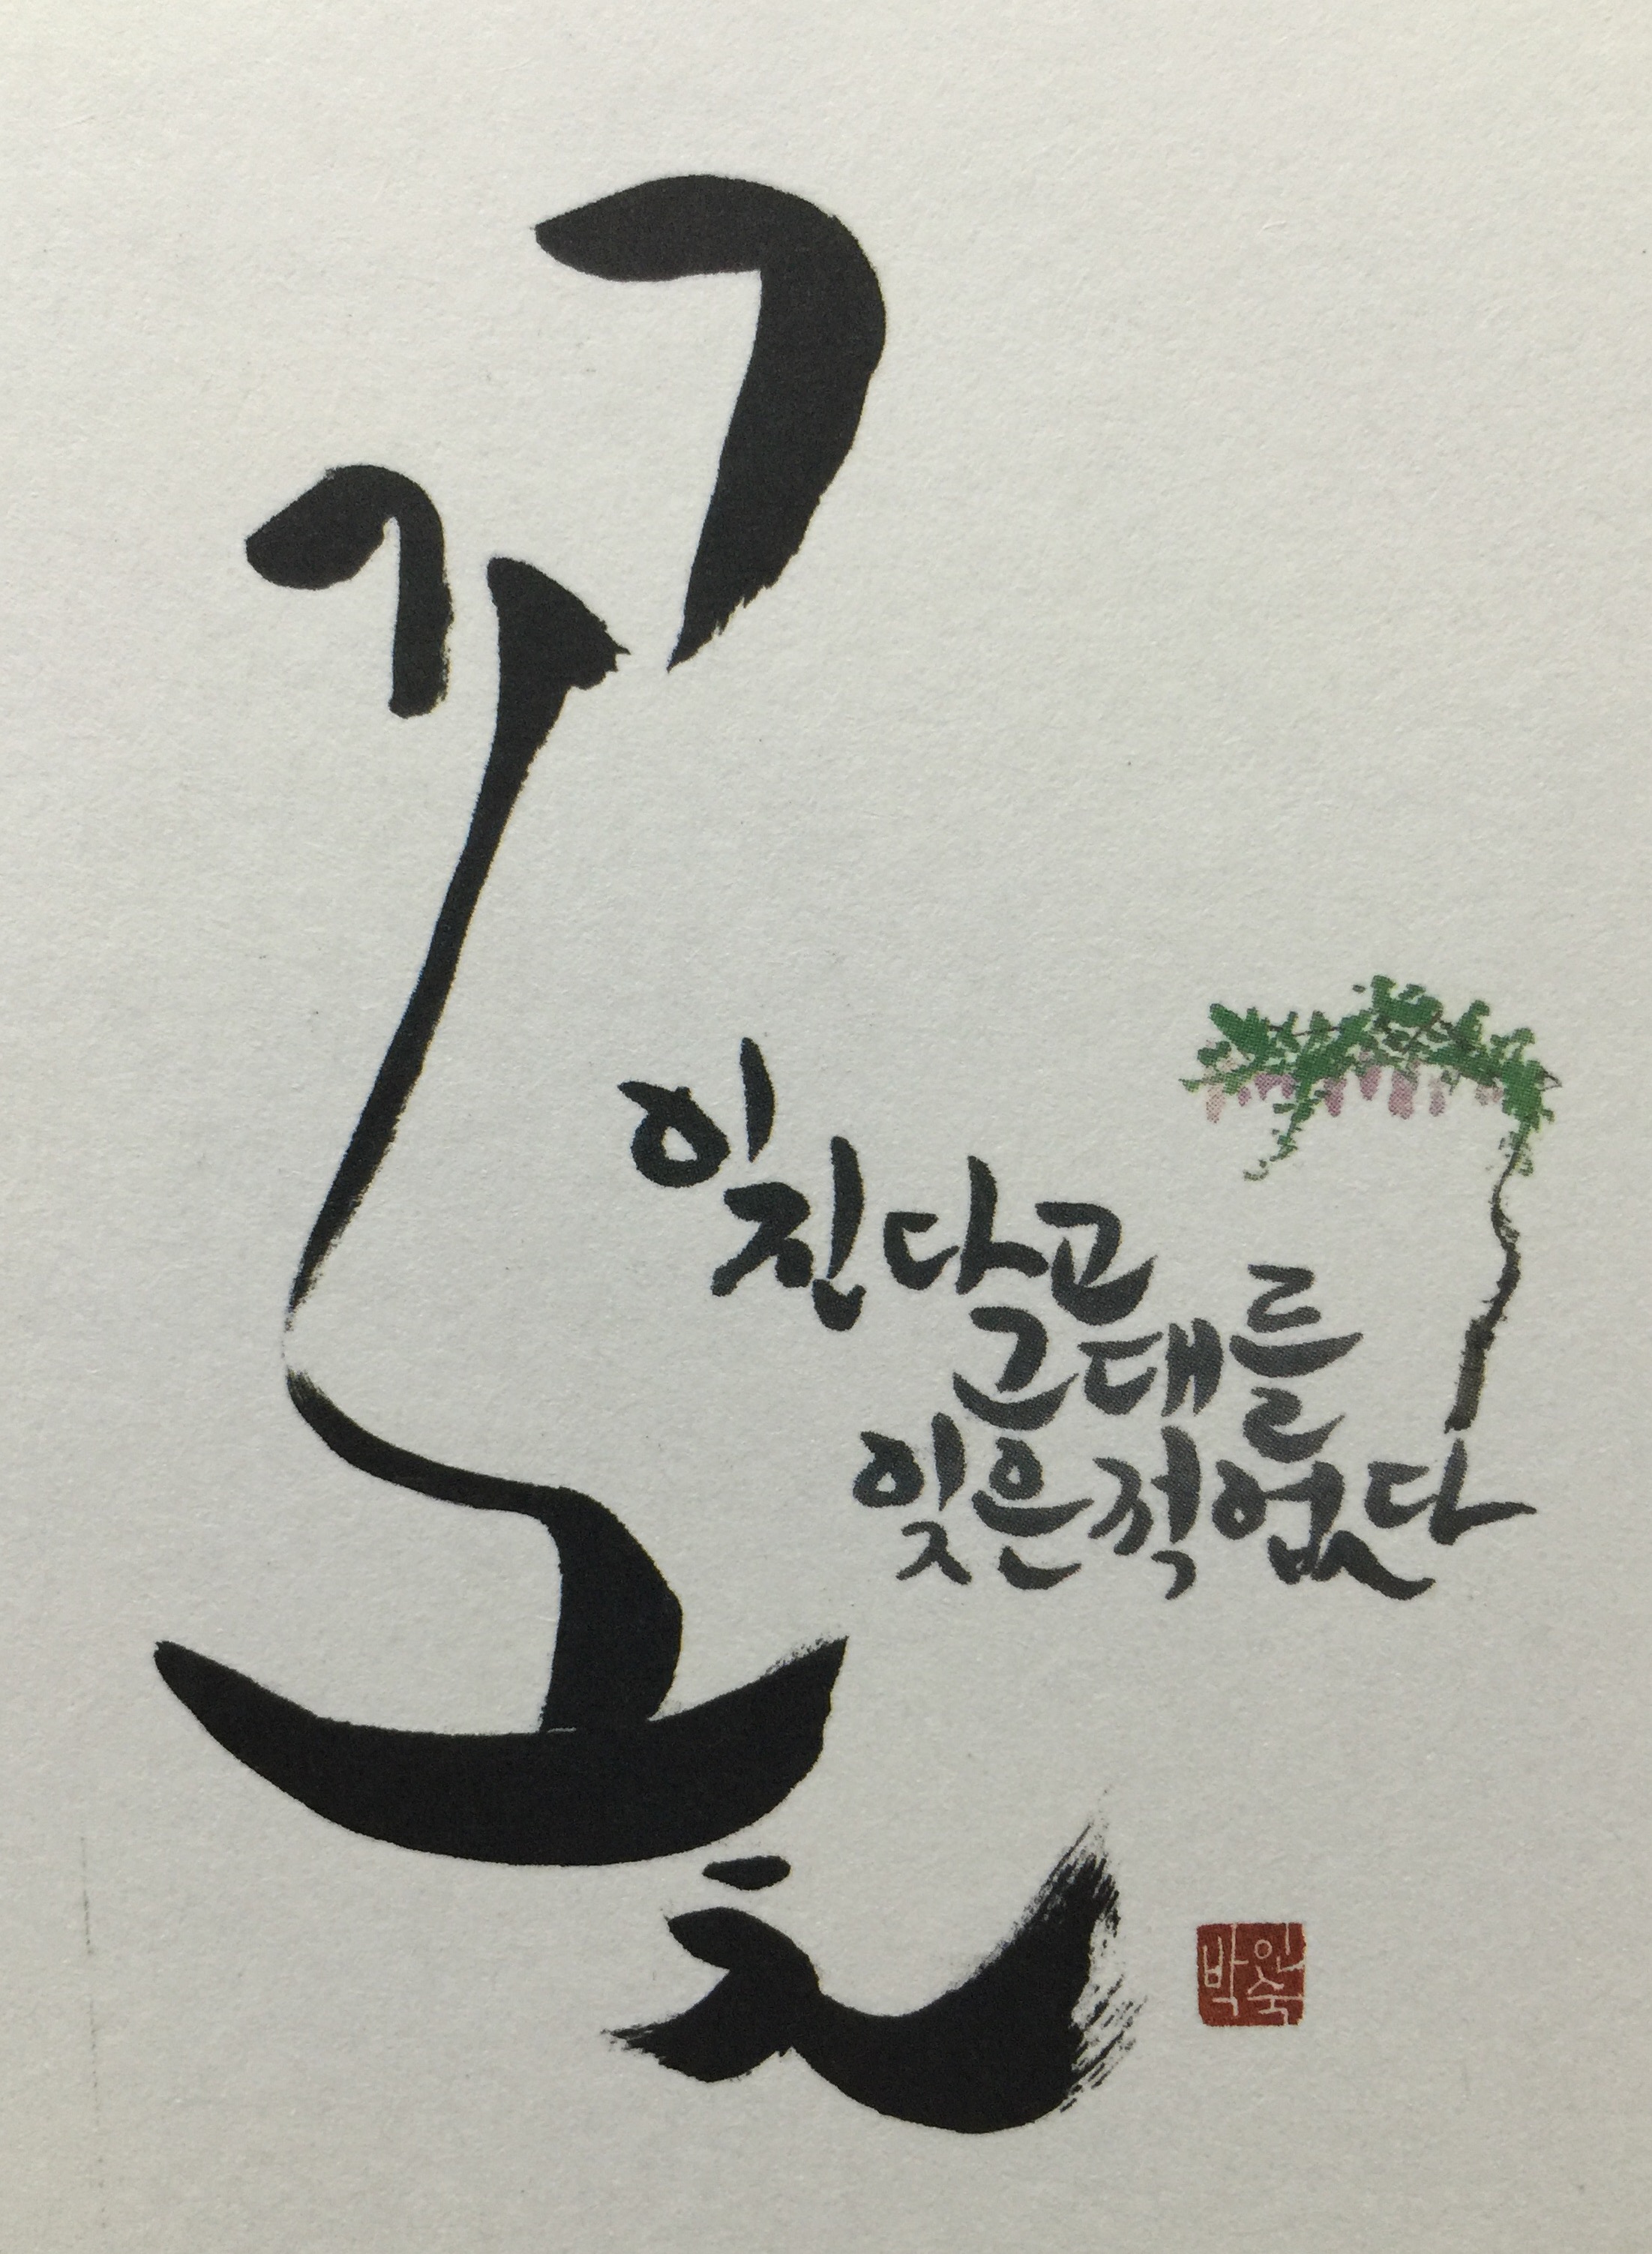 꽃
이 진다고
그대를
잊은 적 없다
박인숙